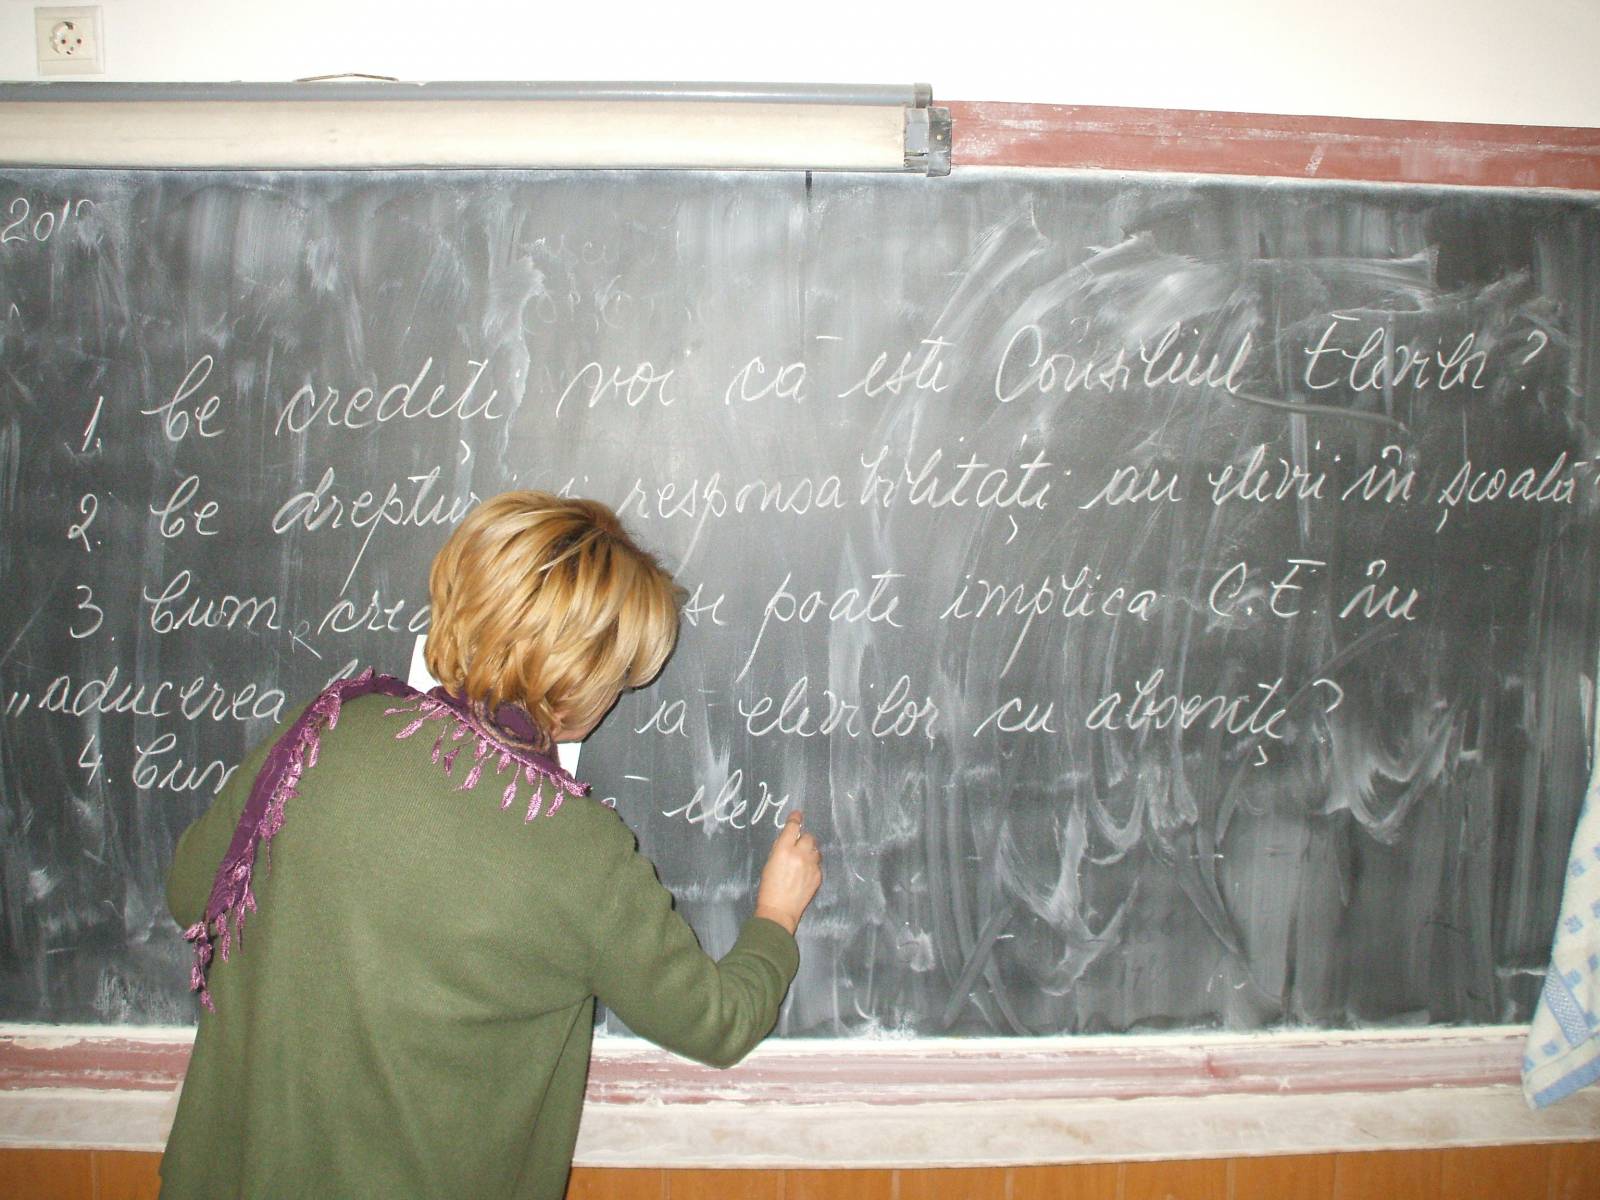 201
1. Ce credeți voi că este Consiliul Elevilor?
2. Ce drepturi și responsabilități au elevii în școală?
3. Cum cred se poate implica C.E. în
„aducerea a elevilor cu absențe?
4. Cum elevi